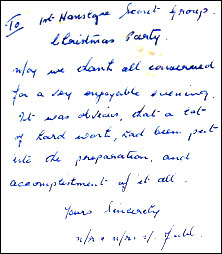 To 1st Hanslope Scout Group.
Christmas Party.
May we thank all concerned
for a very enjoyable evening.
It was obvious, that a lot
of hard work, had been put
into the preparation, and
accomplishment of it all.
Yours Sincerely